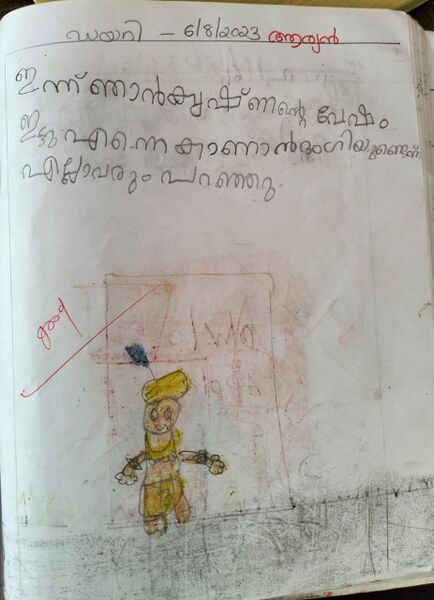 ഡയറി - 6/8/2023 ആര്യൻ
ഇന്ന് ഞാൻ കൃഷ്ണന്റെ വേഷം
ഇട്ടു എന്നെ കാണാൻ ഭംഗിയുണ്ടെന്ന്
എല്ലാവരും പറഞ്ഞു.
good